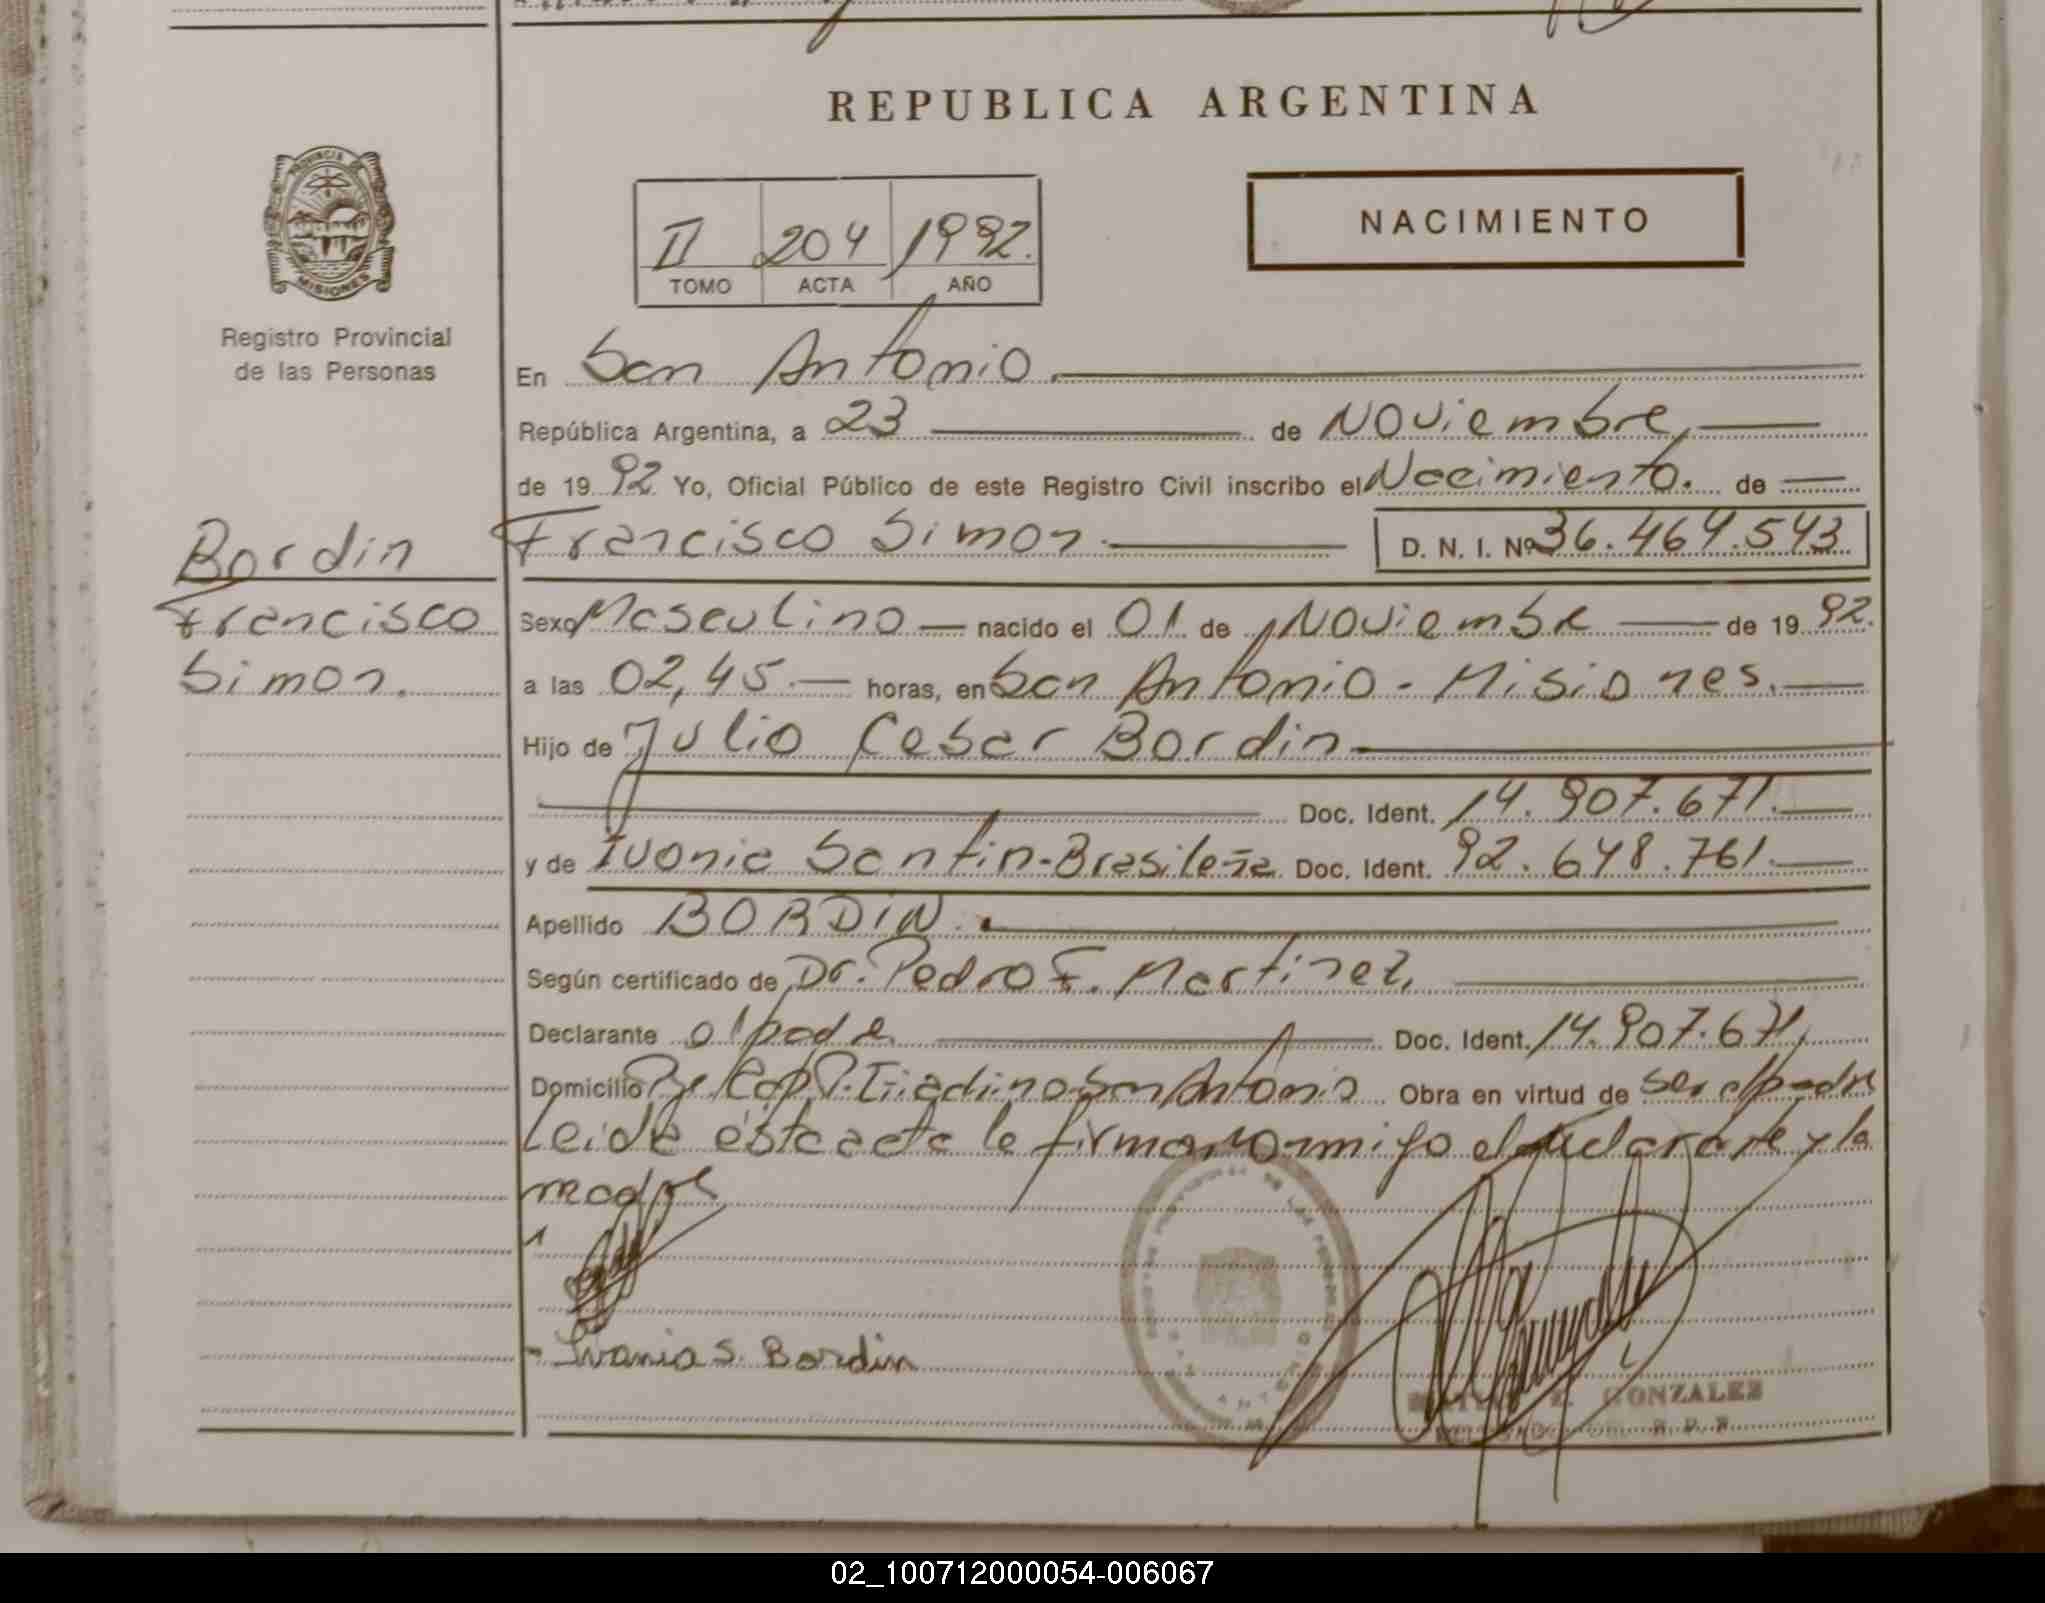 REPUBLICA ARGENTINA
PROVINCIA DE
MISIONES
Registro Provincial
de las Personas
II 204 1992.
TOMO ACTA AÑO
NACIMIENTO
En San Antonio.
República Argentina, a 23 de Noviembre,
de 1992 Yo, Oficial Público de este Registro Civil inscribo el Nacimiento. de
Bordin
Francisco
Simon.
Francisco Simon. D. N. I. Nº 36.464.543
Sexo Masculino nacido el 01 de Noviembre de 1992.
a las 02,45. horas, en San Antonio - Misiones.
Hijo de Julio Cesar Bordin
Doc. Ident. 14.907.671.
y de Ivonia Santin-Brasileña Doc. Ident. 92.648.761.
Apellido BORDIN.
Según certificado de Dr. Pedro F. Martinez,
Declarante el padre Doc. Ident. 14.907.671,
Domicilio San Antonio Obra en virtud de ser el padre
Leida ésta acta la firman conmigo el declarante y la
madre
Ivania S. Bordin
GONZALEZ
R. P. P.
02_100712000054-006067